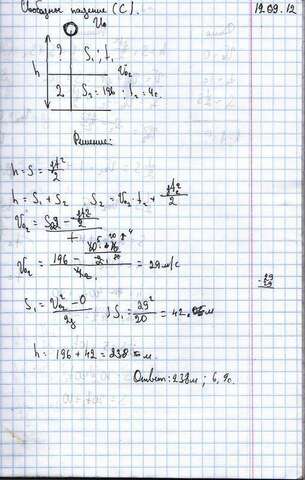 Свободное падение (С). 19.09.12
V₀
? S₁; t₁
h V₀₂
2 S₂ = 196; t₂ = 4с.
Решение:
h = S = gt²/2
h = S₁ + S₂ , S₂ = V₀₂ t₂ + gt₂²/2
V₀₂ = (S₂ - gt²/2)/t
V₀₂ = 196 - = 29 м/с
29
29
S₁ = (V₀₂² - 0)/2g ; S₁ = 29²/20 = 42 м
h = 196 + 42 = 238 м.
Ответ: 238м; 6,9с.